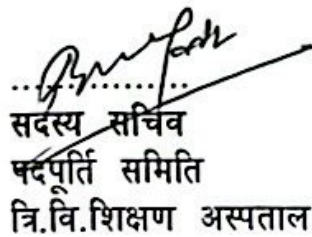 ..................
सदस्य सचिव
पदपूर्ति समिति
त्रि.वि.शिक्षण अस्पताल